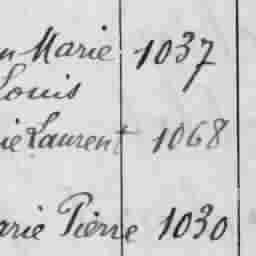 Marie 1037
Louis
Laurent 1068
Pierre 1030